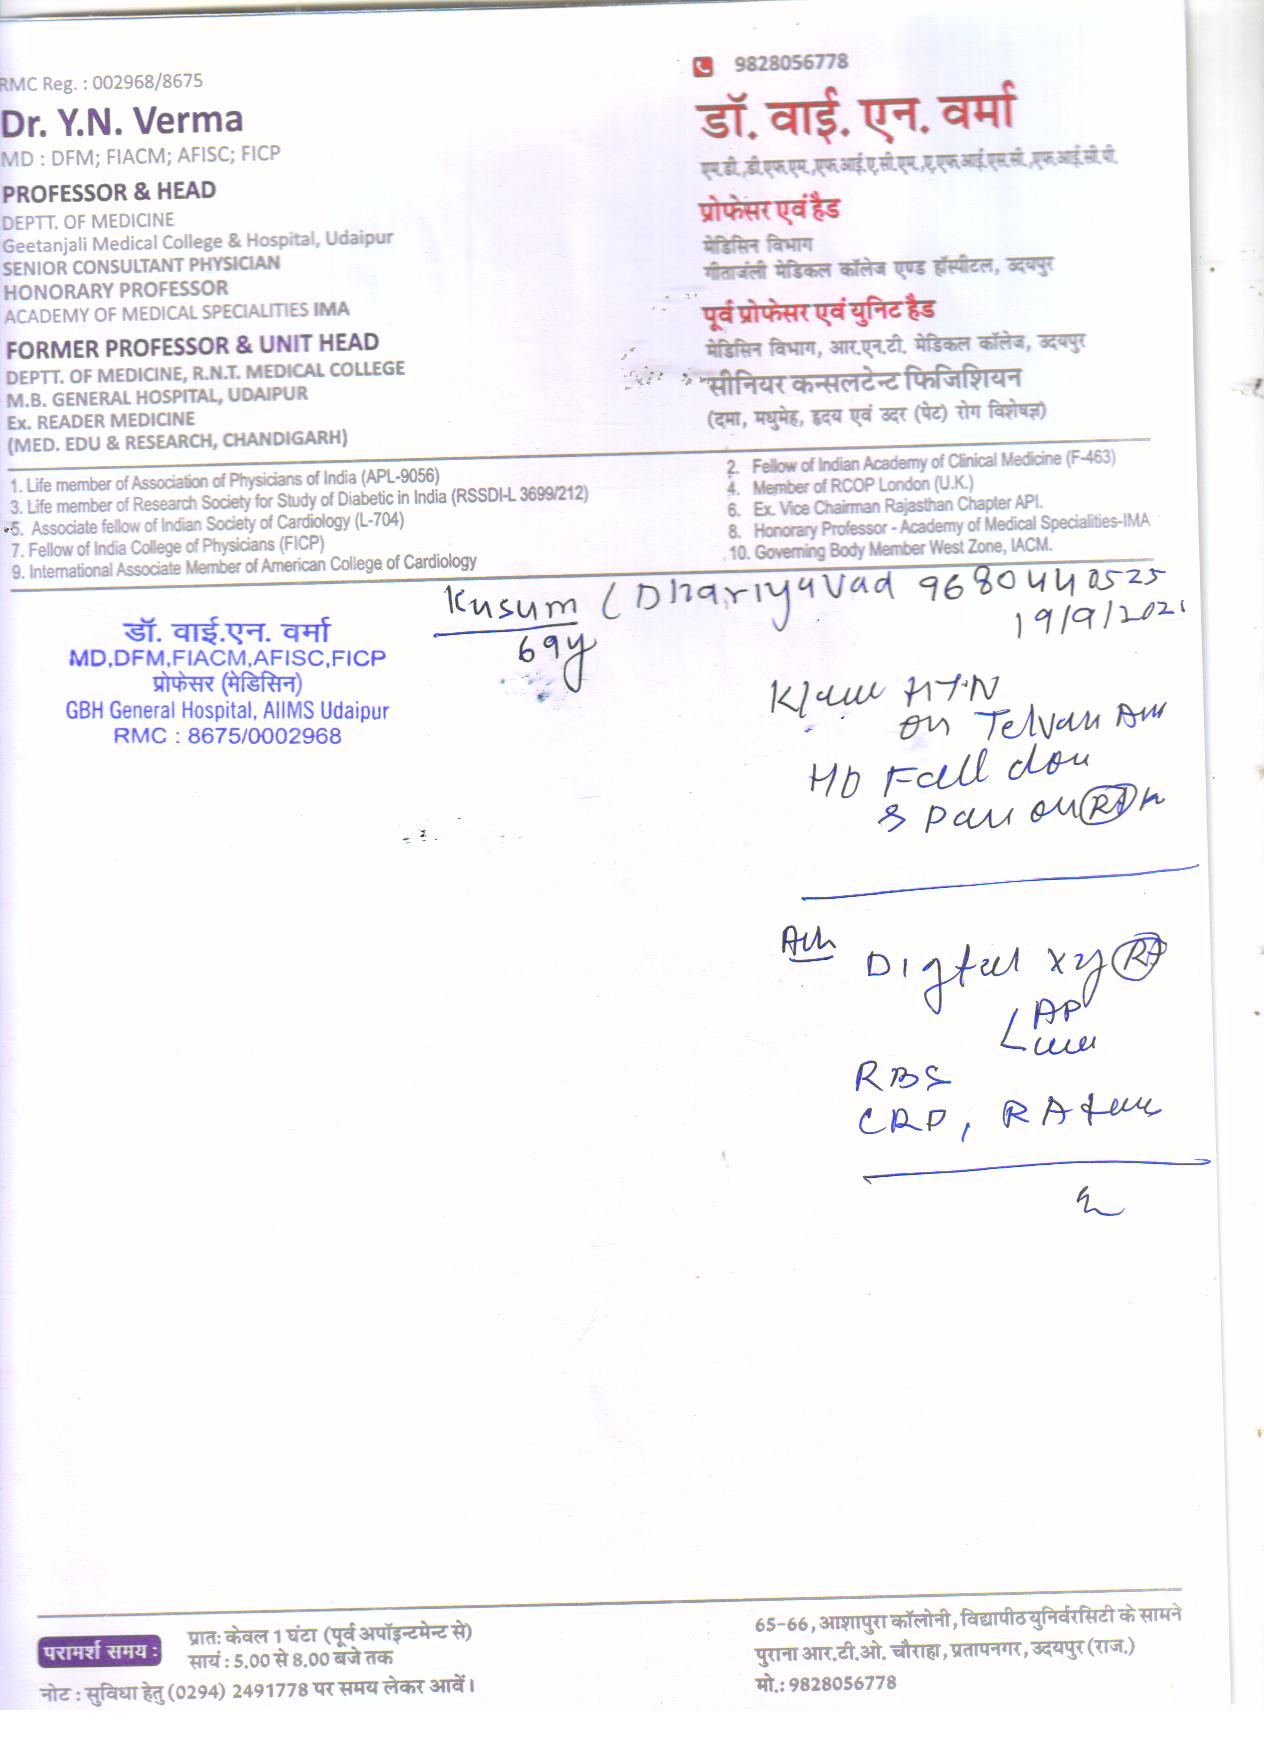 RMC Reg. : 002968/8675
Dr. Y.N. Verma
MD : DFM; FIACM; AFISC; FICP
PROFESSOR & HEAD
DEPTT. OF MEDICINE
Geetanjali Medical College & Hospital, Udaipur
SENIOR CONSULTANT PHYSICIAN
HONORARY PROFESSOR
ACADEMY OF MEDICAL SPECIALITIES IMA
FORMER PROFESSOR & UNIT HEAD
DEPTT. OF MEDICINE, R.N.T. MEDICAL COLLEGE
M.B. GENERAL HOSPITAL, UDAIPUR
Ex. READER MEDICINE
(MED. EDU & RESEARCH, CHANDIGARH)
9828056778
डॉ. वाई. एन. वर्मा
एम.डी.,डी.एफ.एम.,एफ.आई.ए.सी.एम.,ए.एफ.आई.एस.सी.,एफ.आई.सी.पी.
प्रोफेसर एवं हैड
मेडिसिन विभाग
गीतांजली मेडिकल कॉलेज एण्ड हॉस्पीटल, उदयपुर
पूर्व प्रोफेसर एवं युनिट हैड
मेडिसिन विभाग, आर.एन.टी. मेडिकल कॉलेज, उदयपुर
सीनियर कन्सलटेन्ट फिजिशियन
(दमा, मधुमेह, हृदय एवं उदर (पेट) रोग विशेषज्ञ)
1. Life member of Association of Physicians of India (APL-9056)
2. Fellow of Indian Academy of Clinical Medicine (F-463)
3. Life member of Research Society for Study of Diabetic in India (RSSDI-L 3699/212)
4. Member of RCOP London (U.K.)
5. Associate fellow of Indian Society of Cardiology (L-704)
6. Ex. Vice Chairman Rajasthan Chapter API.
7. Fellow of India College of Physicians (FICP)
8. Honorary Professor - Academy of Medical Specialities-IMA
9. International Associate Member of American College of Cardiology
10. Governing Body Member West Zone, IACM.
Kusum (Dhariyavad 9680440525
69y
19/9/2021
डॉ. वाई.एन. वर्मा
MD,DFM,FIACM,AFISC,FICP
प्रोफेसर (मेडिसिन)
GBH General Hospital, AIIMS Udaipur
RMC : 8675/0002968
HTN
on Telvan Am
H/O Fall
on
Digital
AP
RBS
CRP, RA
परामर्श समय :
प्रातः केवल 1 घंटा (पूर्व अपॉइन्टमेन्ट से)
सायं : 5.00 से 8.00 बजे तक
नोट : सुविधा हेतु (0294) 2491778 पर समय लेकर आवें।
65-66, आशापुरा कॉलोनी, विद्यापीठ युनिर्वरसिटी के सामने
पुराना आर.टी.ओ. चौराहा, प्रतापनगर, उदयपुर (राज.)
मो.: 9828056778